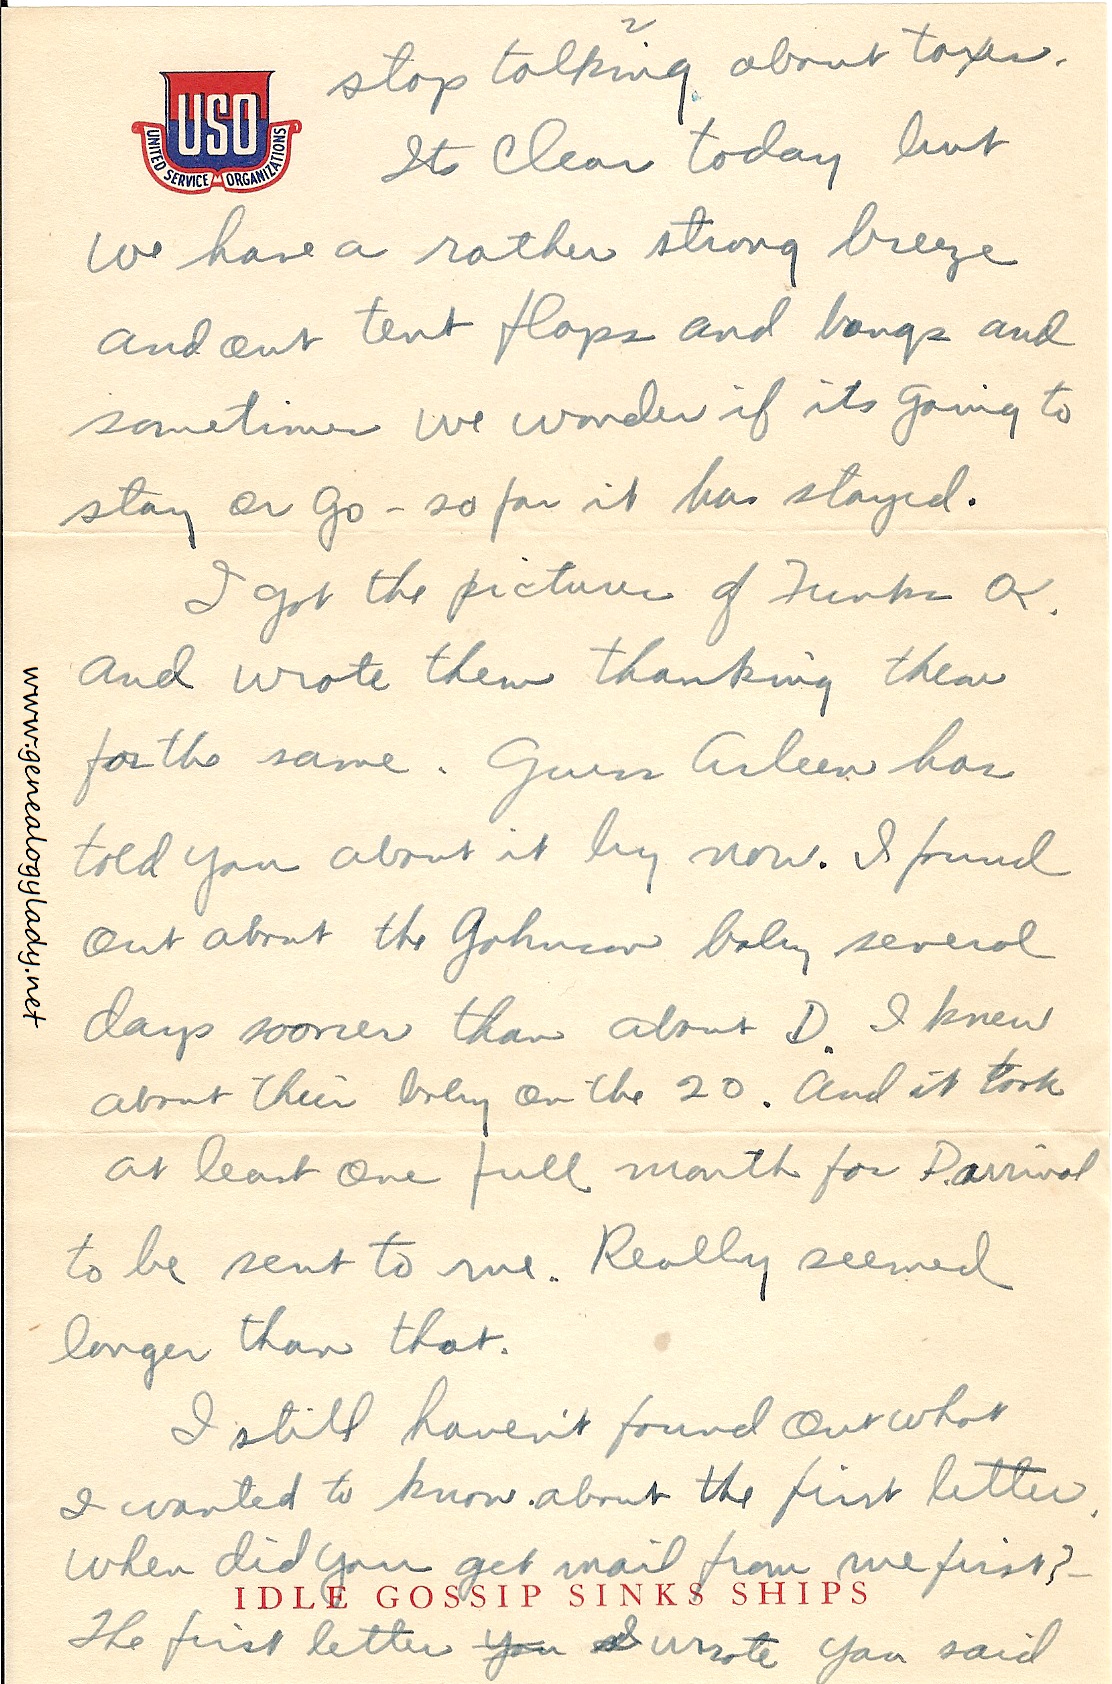 2
stop talking about taxes.
USO
UNITED SERVICE ORGANIZATIONS
Its clear today but
we have a rather strong breeze
and out tent flaps and bangs and
sometimes we wonder if its going to
stay or go - so far it has stayed.
I got the pictures of Funks OK.
and wrote them thanking them
for the same. Guess Arleen has
told you about it by now. I found
out about the Johnson baby several
days sooner than about D. I knew
about their baby on the 20. And it took
at least one full month for D. arrival
to be sent to me. Really seemed
longer than that.
I still haven't found out what
I wanted to know about the first letter.
When did you get mail from me first? -
IDLE GOSSIP SINKS SHIPS
The first letter you I wrote you said
www.genealogylady.net